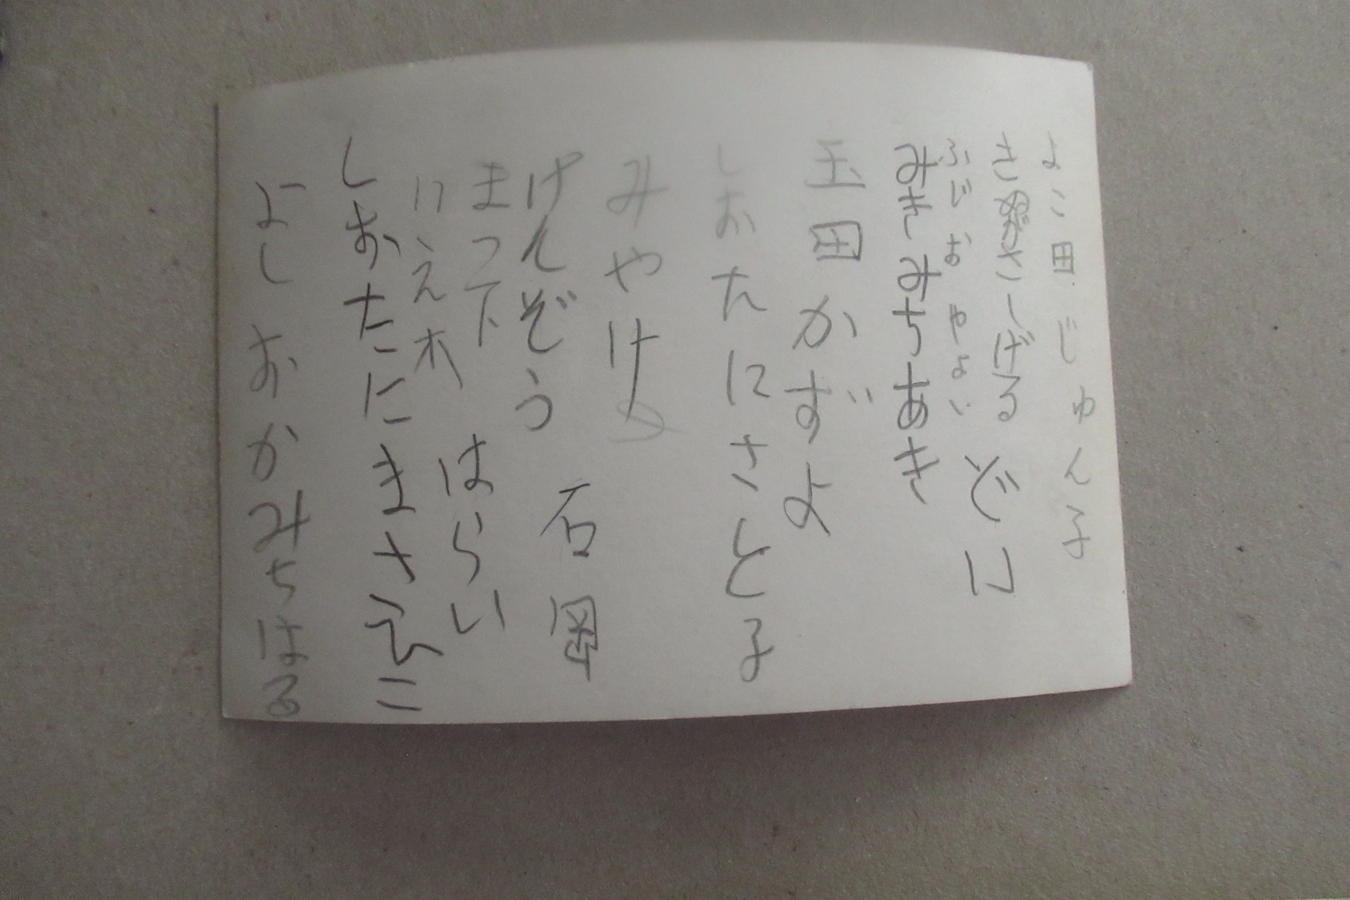 よこ田じゅん子
しげる どい
ふじおやよい
みきみちあき
玉田かずよ
しおたにさと子
みやけ
けんぞう 石岡
まつ下 はらい
しおたにまさひこ
よしおかみちはる